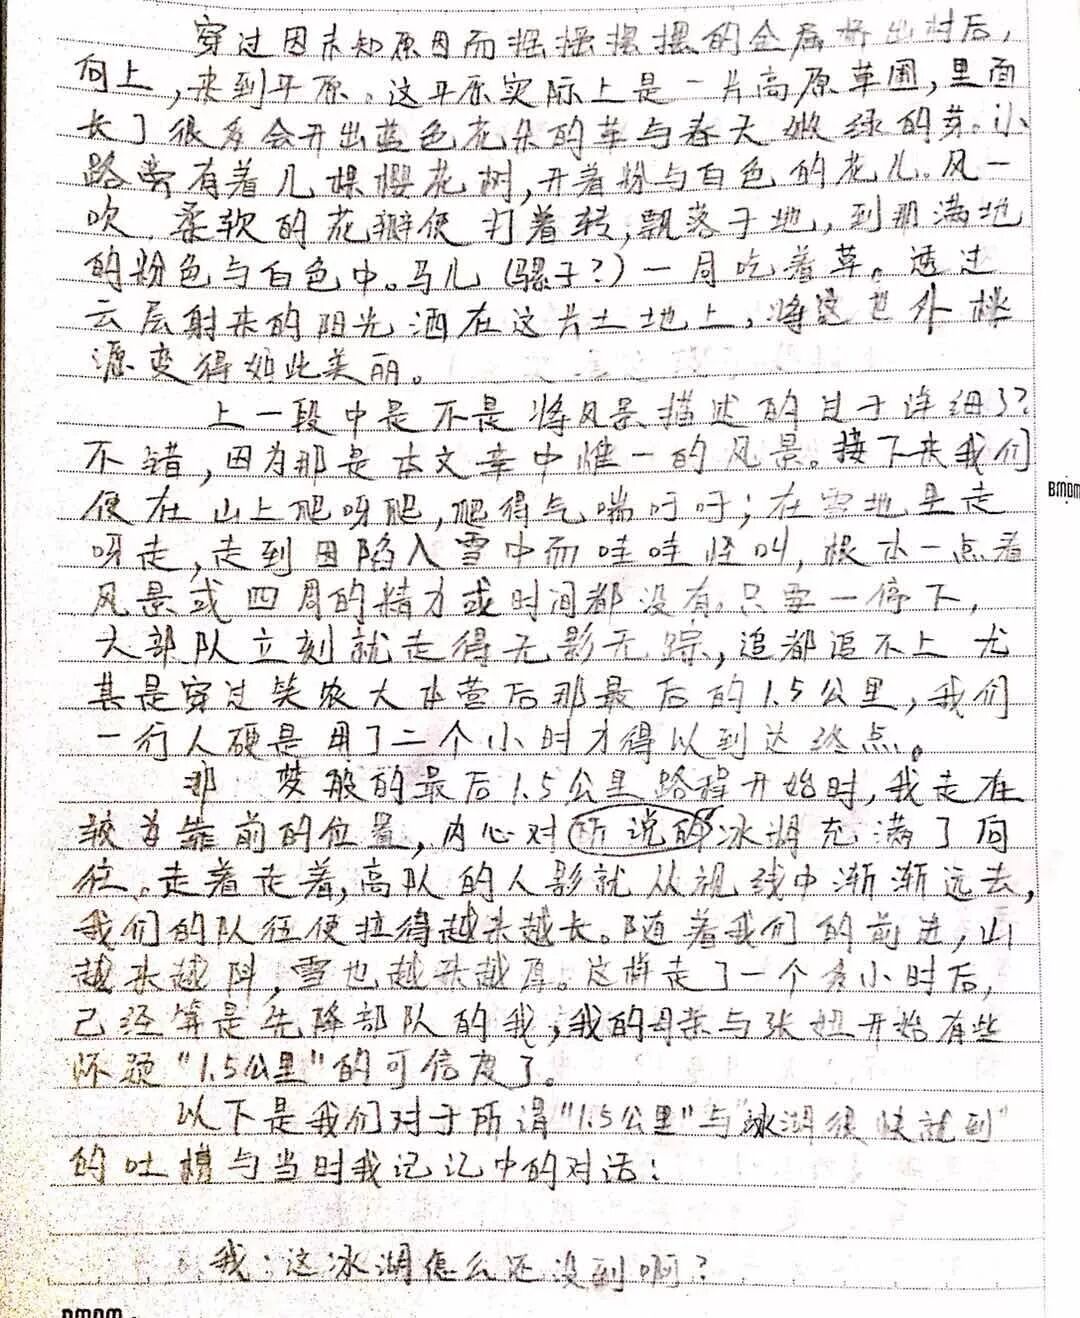 穿过因未知原因而摇摇摆摆的金属桥出村后,
向上,来到平原。这平原实际上是一片高原草圃,里面
长了很多会开出蓝色花朵的草与春天嫩绿的芽。小
路旁有着几棵樱花树,开着粉与白色的花儿。风一
吹,柔软的花瓣便打着转,飘落于地,到那满地
的粉色与白色中。马儿(骡子?)一同吃着草。透过
云层射来的阳光洒在这片土地上,将这世外桃
源变得如此美丽。
上一段中是不是将风景描述的过于详细了?
不错,因为那是本文章中惟一的风景。接下来我们
便在山上爬呀爬,爬得气喘吁吁;在雪地里走
呀走,走到因陷入雪中而哇哇怪叫,根本一点看
风景或四周的精力或时间都没有。只要一停下,
大部队立刻就走得无影无踪,追都追不上。尤
其是穿过笑农大本营后那最后的1.5公里,我们
一行人硬是用了二个小时才得以到达终点。
那 梦般的最后1.5公里路程开始时,我走在
较为靠前的位置,内心对所说的冰湖充满了向
往。走着走着,高队的人影就从视线中渐渐远去,
我们的队伍便拉得越来越长。随着我们的前进,山
越来越陡,雪也越来越厚。这样走了一个多小时后,
已经算是先降部队的我,我的母亲与张妞开始有些
怀疑"1.5公里"的可信度了。
以下是我们对于所谓"1.5公里"与"冰湖很快就到"
的吐槽与当时我记忆中的对话:
我:这冰湖怎么还没到啊?
BMDM
BMDM